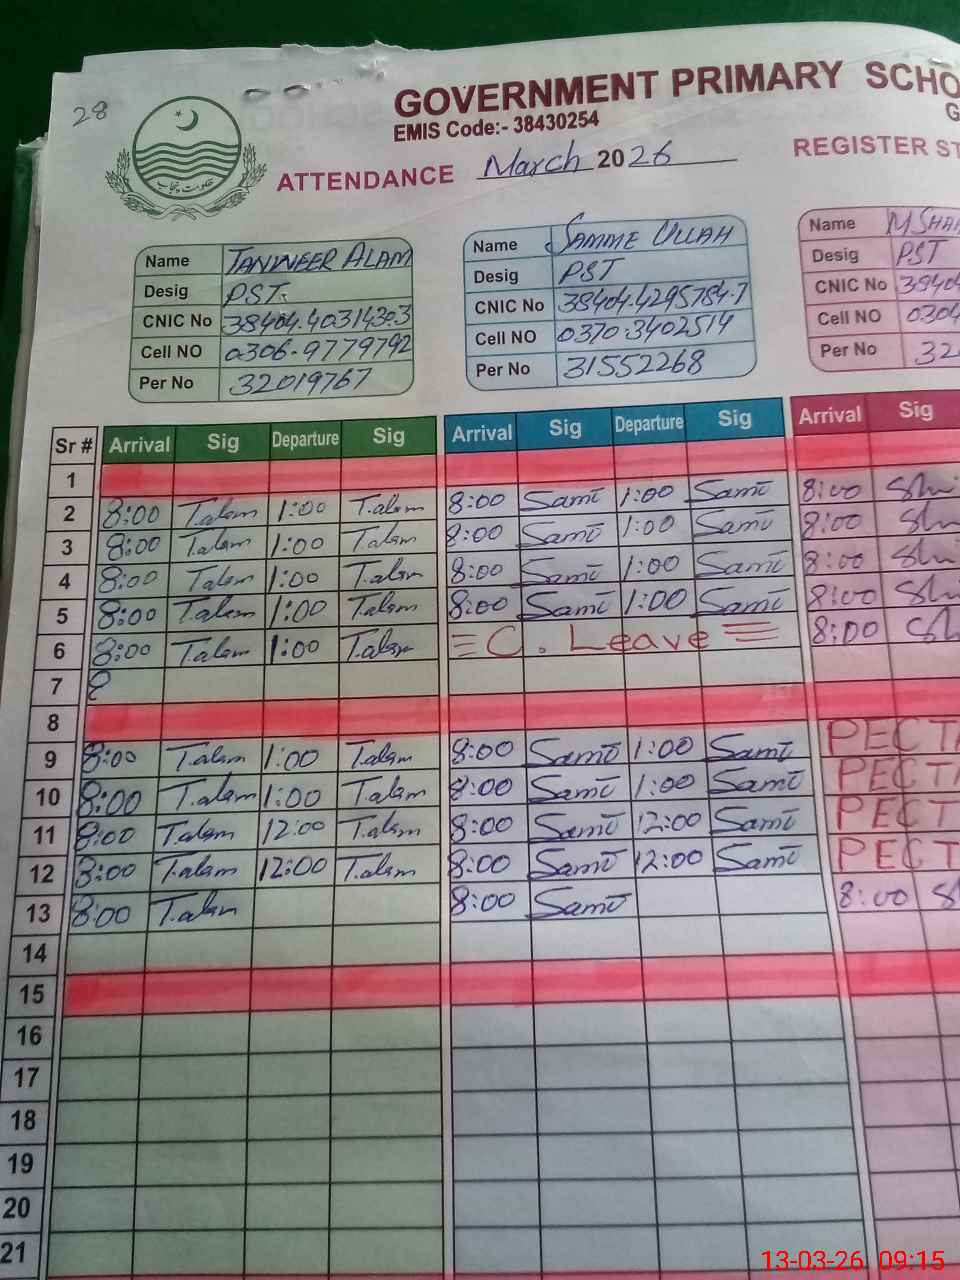 28
GOVERNMENT PRIMARY SCHO
G
EMIS Code:- 38430254
ATTENDANCE March 2026 REGISTER ST
حکومت پنجاب
Name TANWEER ALAM
Desig PST.
CNIC No 38404.4031430.3
Cell NO 0306-9779792
Per No 32019767
Name SAMME ULLAH
Desig PST
CNIC No 38404.4295784.7
Cell NO 0370-3402514
Per No 31552268
Name M SHA
Desig PST
CNIC No 38404
Cell NO 0304
Per No 32
Sr # Arrival Sig Departure Sig Arrival Sig Departure Sig Arrival Sig
1
2 8:00 T.alam 1:00 T.alam 8:00 Samī 1:00 Samī 8:00 Sh
3 8:00 T.alam 1:00 T.alam 8:00 Samī 1:00 Samī 8:00 Sh
4 8:00 T.alam 1:00 T.alam 8:00 Samī 1:00 Samī 8:00 Sh
5 8:00 T.alam 1:00 T.alam 8:00 Samī 1:00 Samī 8:00 Sh
6 8:00 T.alam 1:00 T.alam C. Leave 8:00 Sh
7 8
8
9 8:00 T.alam 1:00 T.alam 8:00 Samī 1:00 Samī PECTA
10 8:00 T.alam 1:00 T.alam 8:00 Samī 1:00 Samī PECT
11 8:00 T.alam 12:00 T.alam 8:00 Samī 12:00 Samī PECT
12 8:00 T.alam 12:00 T.alam 8:00 Samī 12:00 Samī PECT
13 8:00 T.alam 8:00 Samī 8:00 S
14
15
16
17
18
19
20
21
13-03-26 09:15